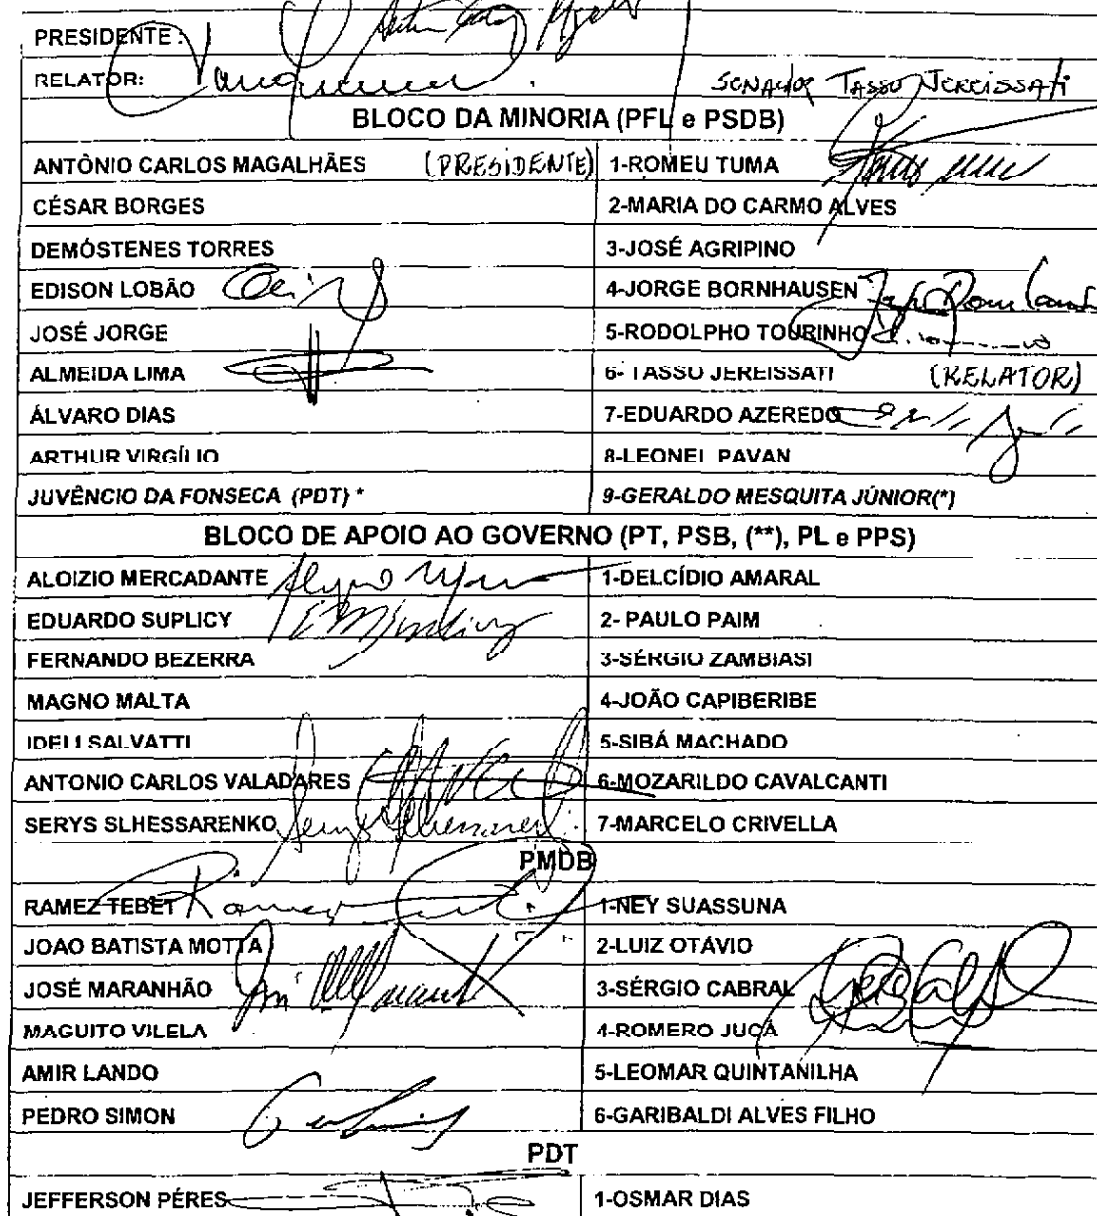 PRESIDENTE:
RELATOR: SENADOR TASSO JEREISSATI
BLOCO DA MINORIA (PFL e PSDB)
ANTÔNIO CARLOS MAGALHÃES (PRESIDENTE) 1-ROMEU TUMA
CÉSAR BORGES 2-MARIA DO CARMO ALVES
DEMÓSTENES TORRES 3-JOSÉ AGRIPINO
EDISON LOBÃO 4-JORGE BORNHAUSEN
JOSÉ JORGE 5-RODOLPHO TOURINHO
ALMEIDA LIMA 6- TASSO JEREISSATI (RELATOR)
ÁLVARO DIAS 7-EDUARDO AZEREDO
ARTHUR VIRGÍLIO 8-LEONEL PAVAN
JUVÊNCIO DA FONSECA (PDT) * 9-GERALDO MESQUITA JÚNIOR(*)
BLOCO DE APOIO AO GOVERNO (PT, PSB, (**), PL e PPS)
ALOIZIO MERCADANTE 1-DELCÍDIO AMARAL
EDUARDO SUPLICY 2- PAULO PAIM
FERNANDO BEZERRA 3-SÉRGIO ZAMBIASI
MAGNO MALTA 4-JOÃO CAPIBERIBE
IDELI SALVATTI 5-SIBÁ MACHADO
ANTONIO CARLOS VALADARES 6-MOZARILDO CAVALCANTI
SERYS SLHESSARENKO 7-MARCELO CRIVELLA
PMDB
RAMEZ TEBET 1-NEY SUASSUNA
JOAO BATISTA MOTTA 2-LUIZ OTÁVIO
JOSÉ MARANHÃO 3-SÉRGIO CABRAL
MAGUITO VILELA 4-ROMERO JUCÁ
AMIR LANDO 5-LEOMAR QUINTANILHA
PEDRO SIMON 6-GARIBALDI ALVES FILHO
PDT
JEFFERSON PÉRES 1-OSMAR DIAS